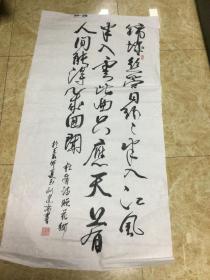 锦城丝管日纷々半入江风
半入雲此曲只應天上有
人间能得几回闻
杜甫诗赠花卿